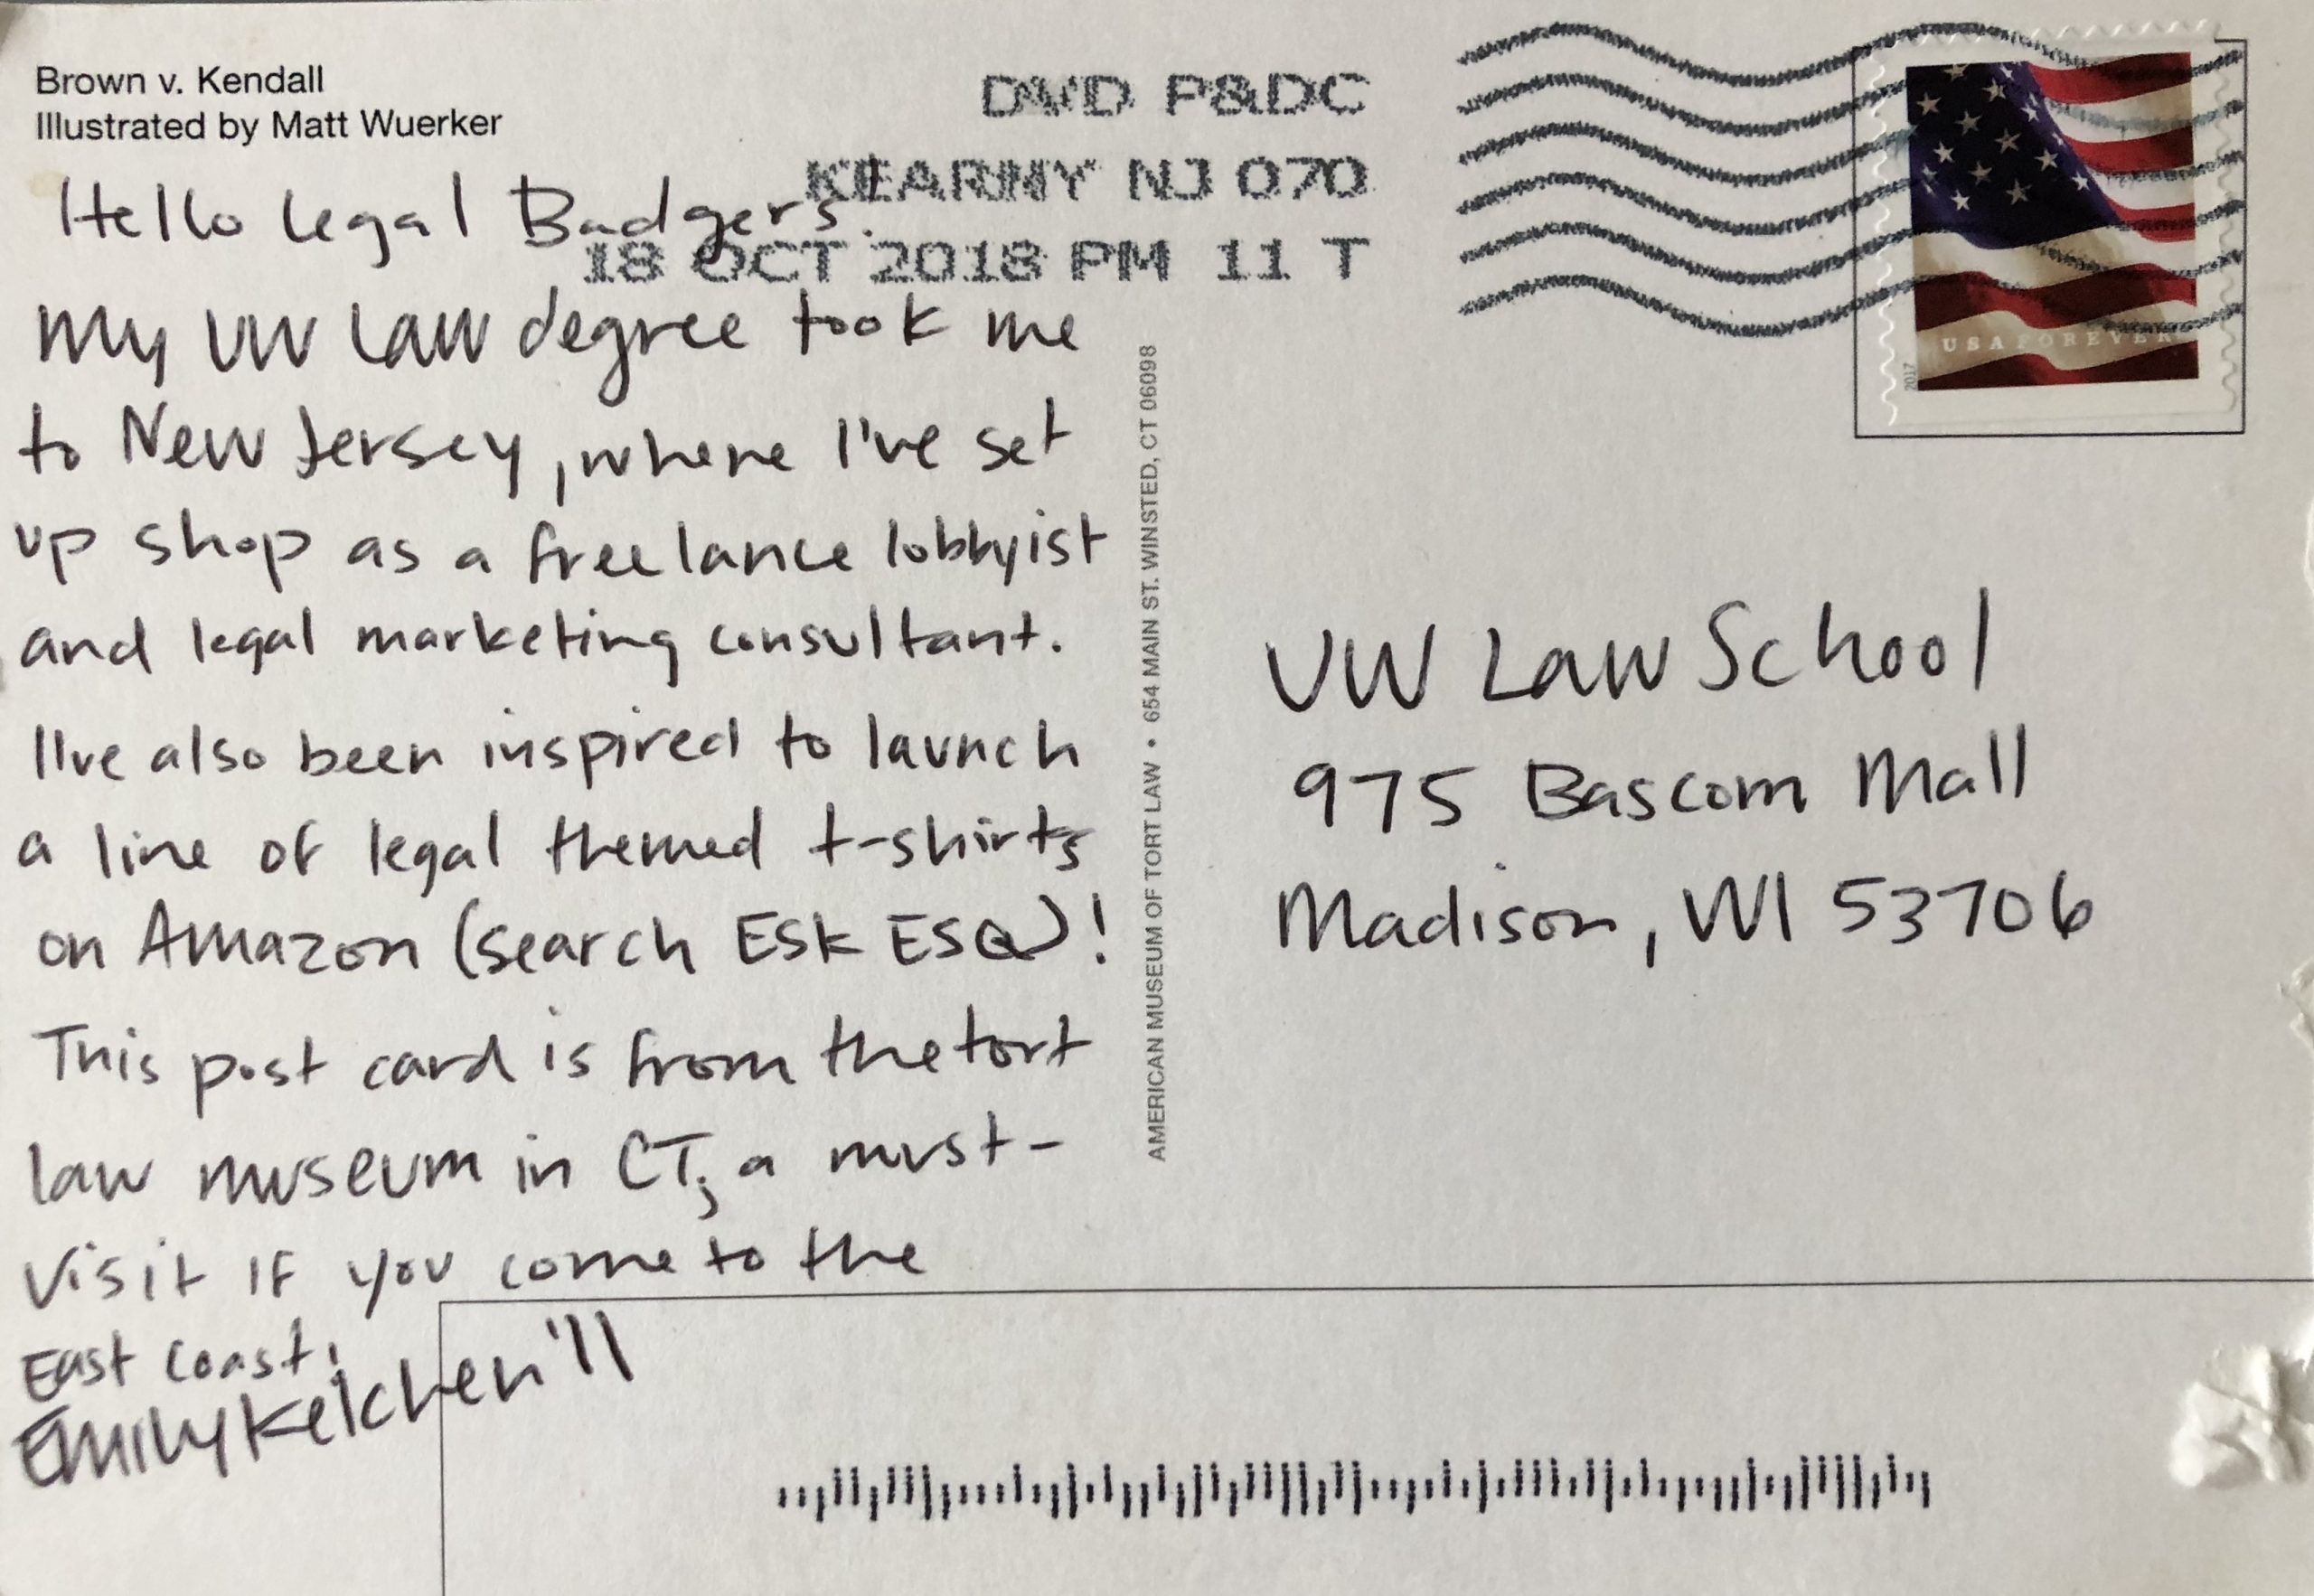 Brown v. Kendall
Illustrated by Matt Wuerker
DVD P&DC
KEARNY NJ 070
18 OCT 2018 PM 11 T
USA FOREVER
2017
Hello Legal Badgers!
My UW Law degree took me
to New Jersey, where I've set
up shop as a freelance lobbyist
and legal marketing consultant.
I've also been inspired to launch
a line of legal themed t-shirts
on Amazon (search ESK ESQ)!
This post card is from the tort
law museum in CT, a must-
visit if you come to the
East Coast!
Emily Kelchen '11
AMERICAN MUSEUM OF TORT LAW • 654 MAIN ST. WINSTED, CT 06098
UW Law School
975 Bascom Mall
Madison, WI 53706